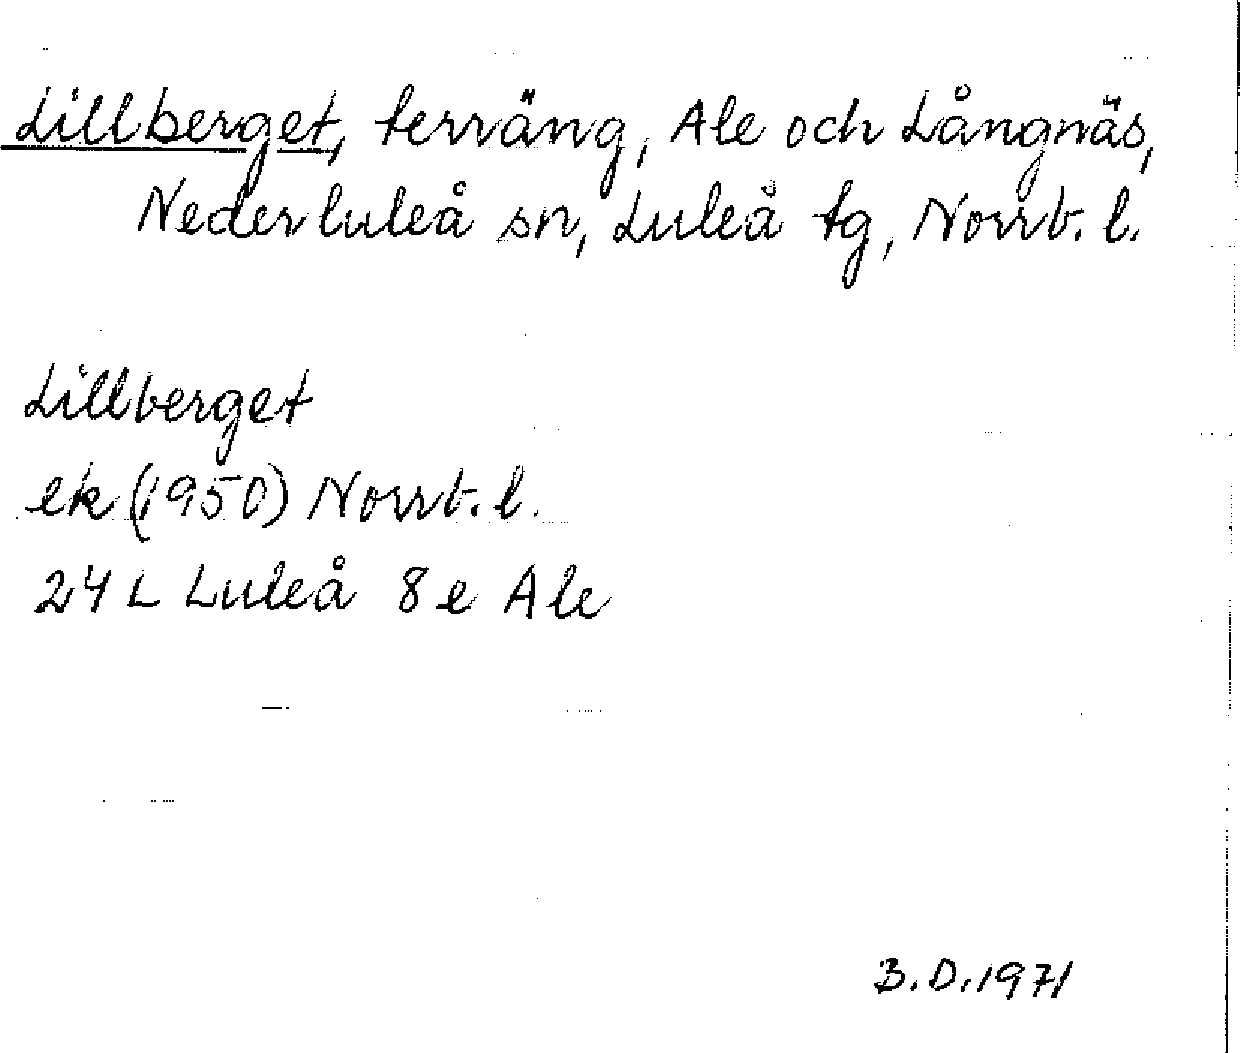 Lillberget, terräng, Ale och Långnäs,
Nederluleå sn, Luleå tg, Norrb. l.
Lillberget
ek (1950) Norrb. l.
24 L Luleå 8 e Ale
B.D. 1971